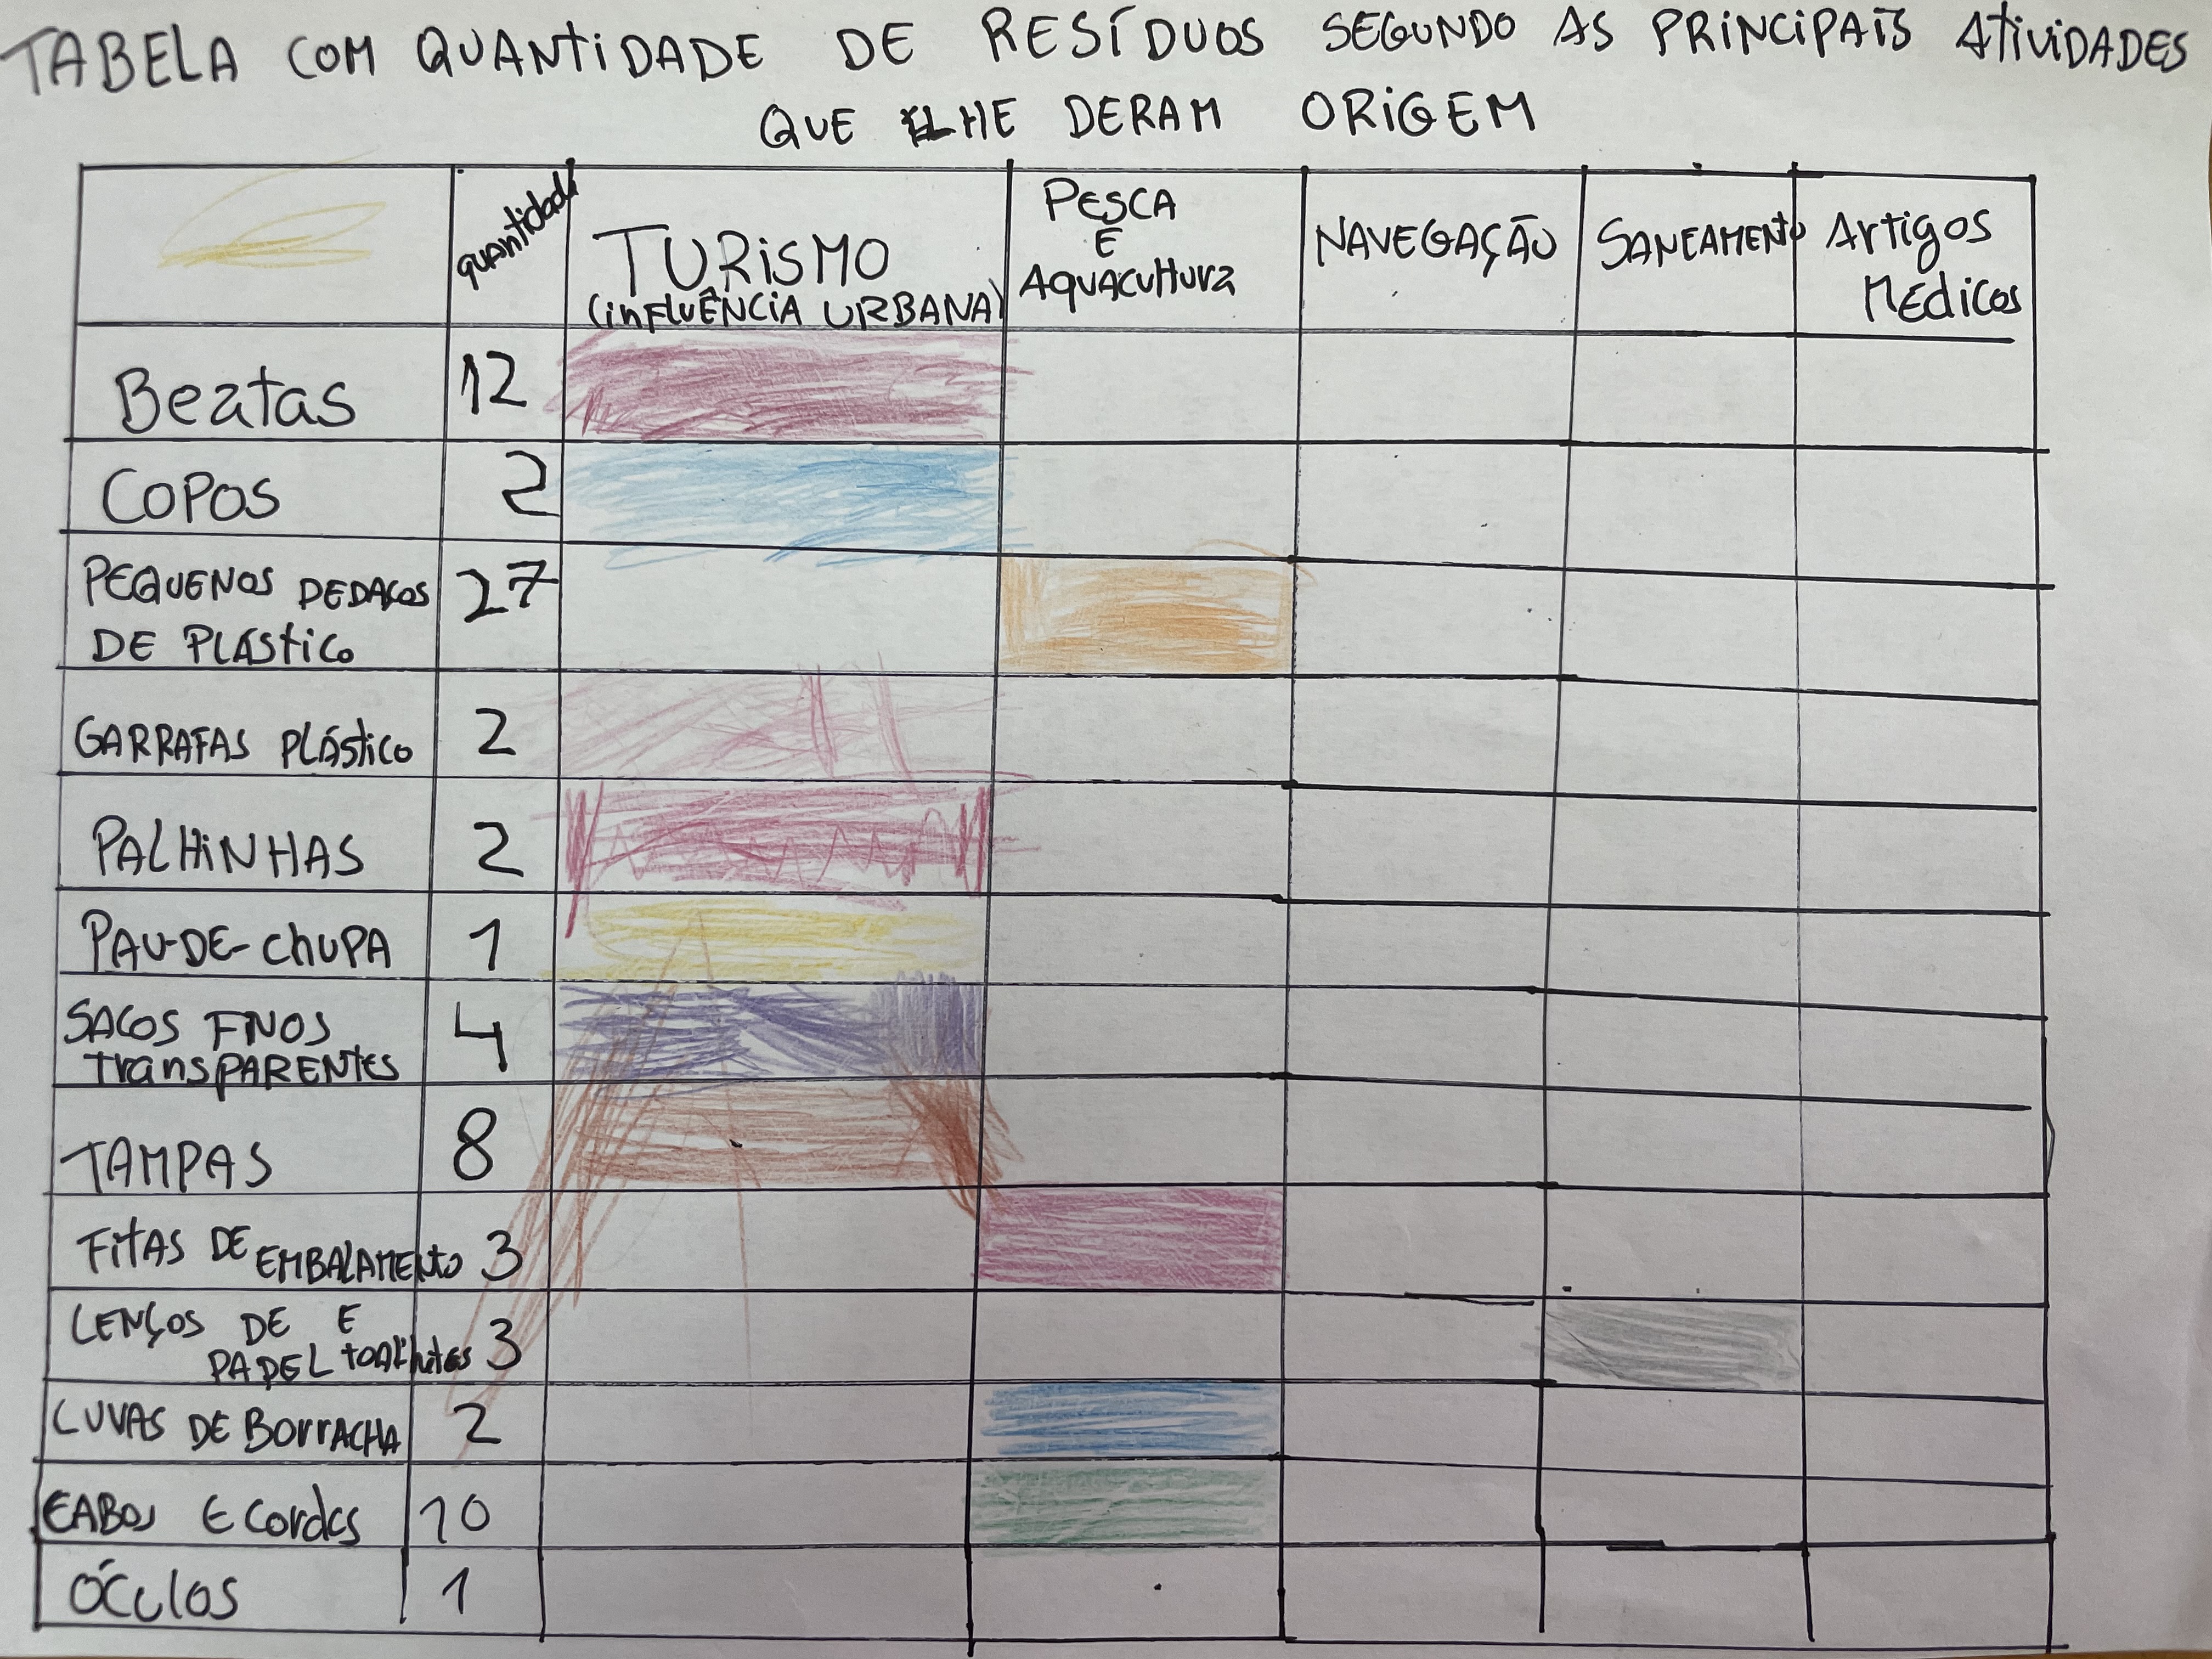 TABELA COM QUANTIDADE DE RESÍDUOS SEGUNDO AS PRINCIPAIS ATIVIDADES
QUE LHE DERAM ORIGEM
quantidade
TURISMO
(INFLUÊNCIA URBANA)
PESCA
E
AQUACULTURA
NAVEGAÇÃO
SANEAMENTO
Artigos
MÉDICOS
Beatas 12
COPOS 2
PEQUENOS PEDAÇOS
DE PLÁSTICO 27
GARRAFAS PLÁSTICO 2
PALHINHAS 2
PAU-DE-CHUPA 1
SACOS FNOS
transPARENTES 4
TAMPAS 8
FITAS DE EMBALAMENTO 3
LENÇOS DE E
PAPEL toalhitas 3
LUVAS DE BORRACHA 2
CABOS E Cordas 10
ÓCULOS 1